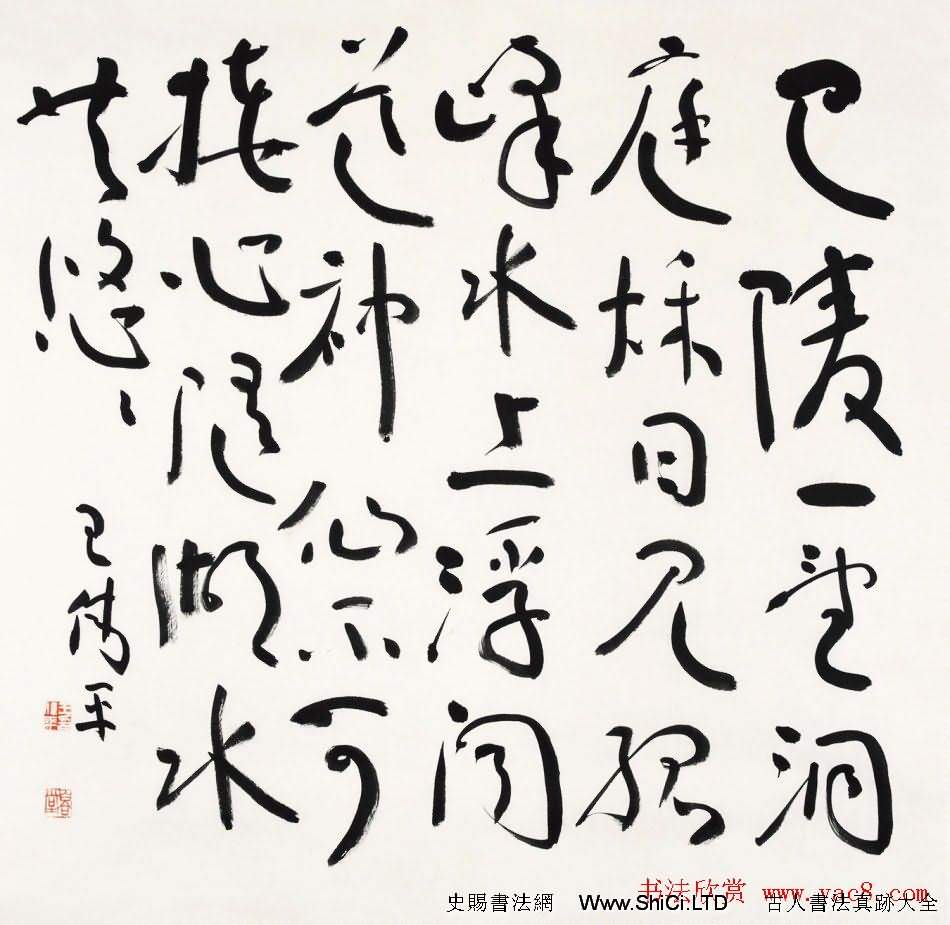 巴陵一望洞
庭秋日见孤
峰水上浮闻
道神仙不可
接心随湖水
共悠々
王伟平
书法欣赏 www.yac8.com
史賜書法網 Www.ShiCi.LTD 古人書法真跡大全